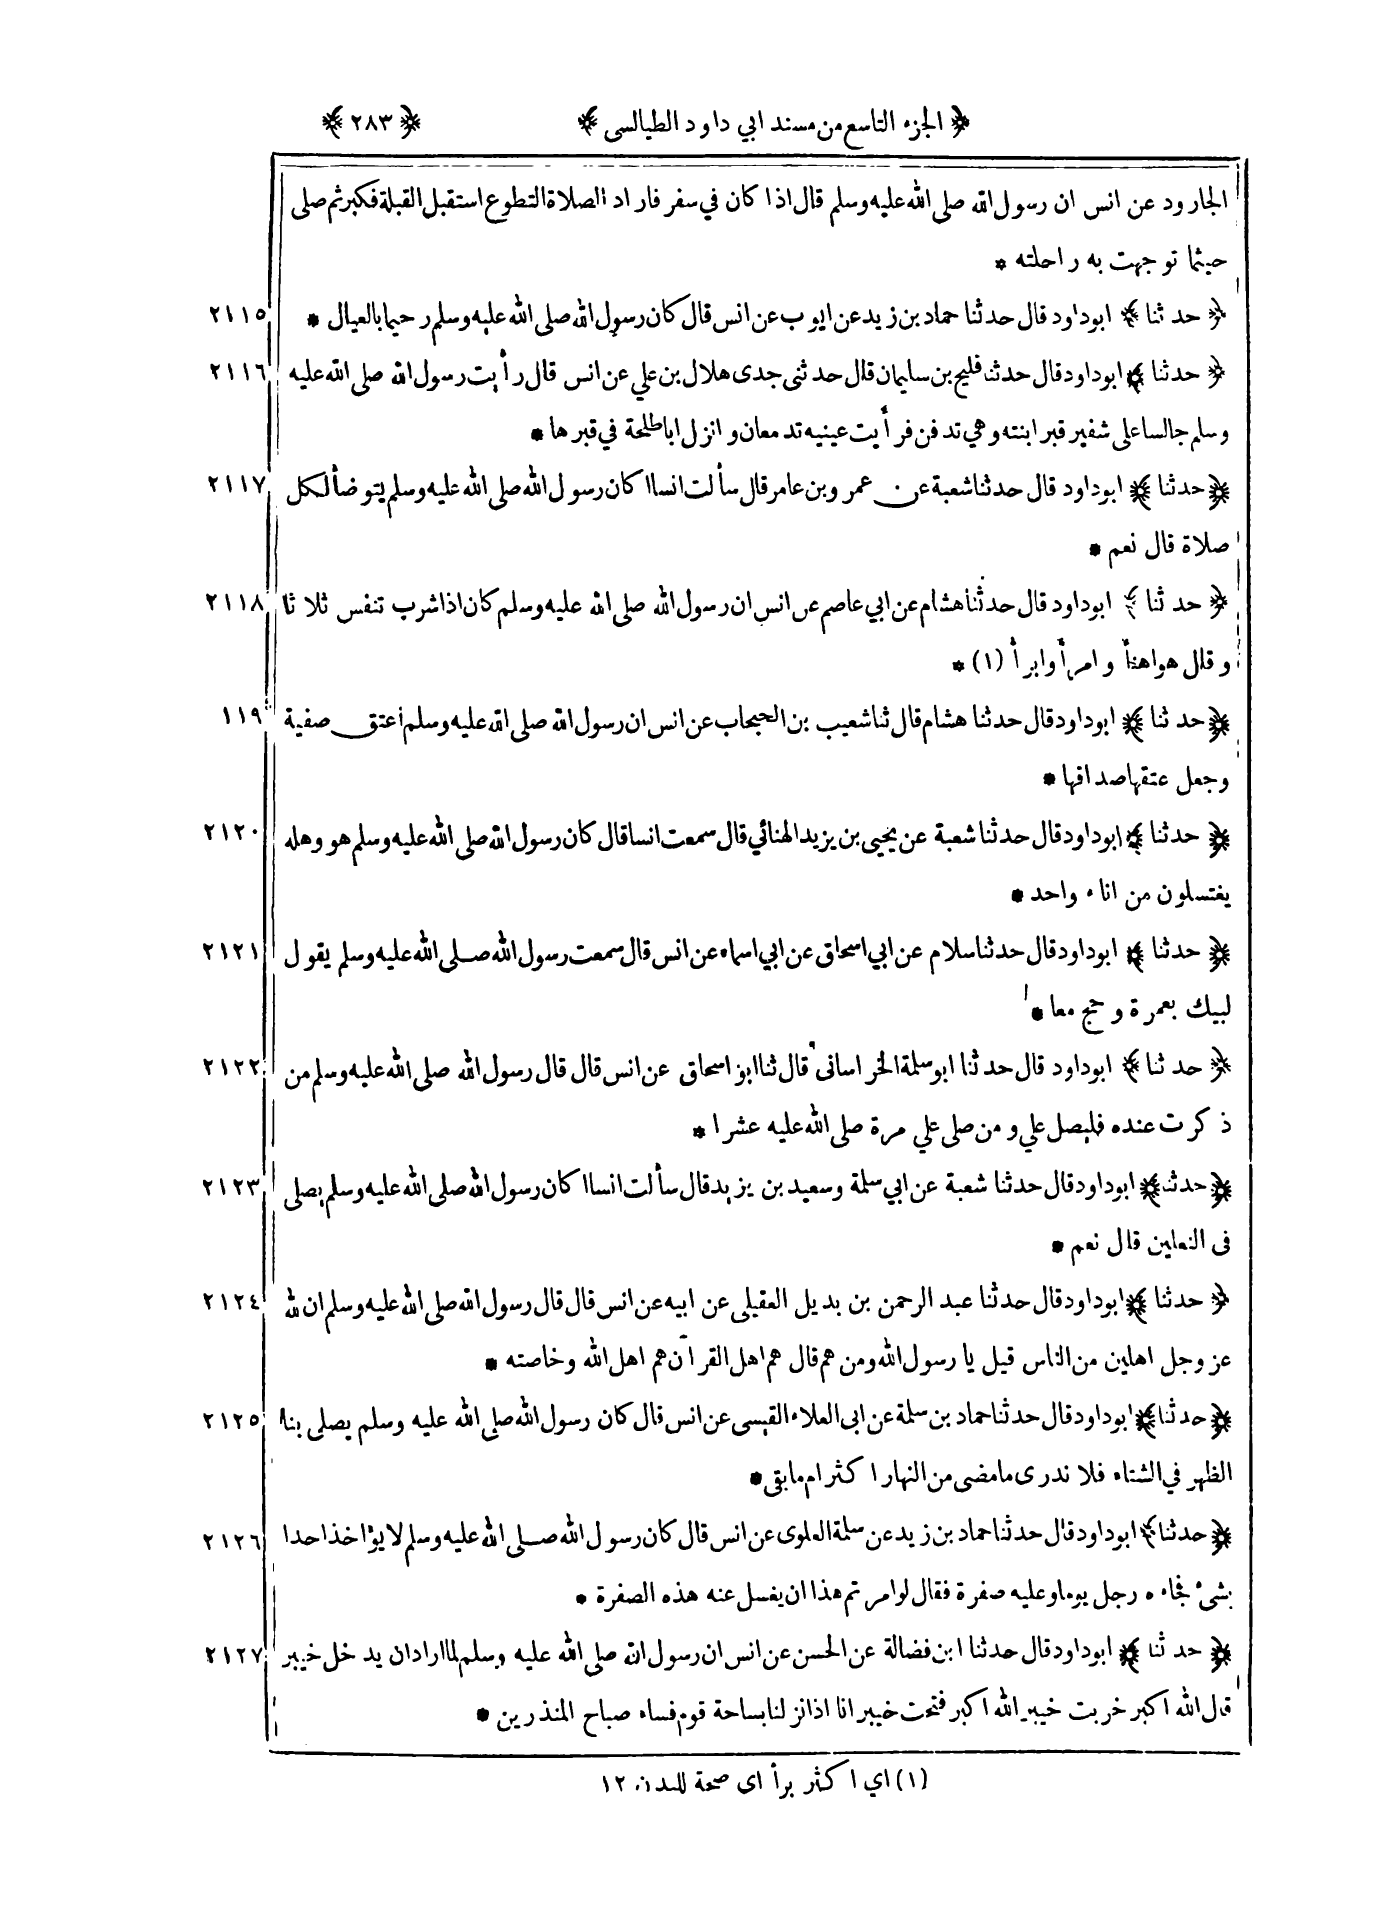 ﴿ الجزء التاسع من مسند ابي داود الطيالسى ﴾ ﴿ ٢٨٣ ﴾
الجارود عن انس ان رسول الله صلى الله عليه وسلم قال اذا كان في سفر فاراد الصلاة التطوع استقبل القبلة فكبر ثم صلى
حيثما توجهت به راحلته *
﴿ حدثنا ﴾ ابوداود قال حدثنا حماد بن زيد عن ايوب عن انس قال كان رسول الله صلى الله عليه وسلم رحيما بالعيال * ٢١١٥
﴿ حدثنا ﴾ ابوداود قال حدثنا فليح بن سليمان قال حدثنى جدى هلال بن علي عن انس قال رأيت رسول الله صلى الله عليه ٢١١٦
وسلم جالسا على شفير قبر ابنته وهي تدفن فرأيت عينيه تدمعان وانزل اباطلحة في قبرها *
﴿ حدثنا ﴾ ابوداود قال حدثنا شعبة عن عمرو بن عامر قال سألت انسا اكان رسول الله صلى الله عليه وسلم يتوضأ لكل ٢١١٧
صلاة قال نعم *
﴿ حدثنا ﴾ ابوداود قال حدثنا هشام عن ابي عاصم عن انس ان رسول الله صلى الله عليه وسلم كان اذا شرب تنفس ثلاثا ٢١١٨
وقال هو اهنأ وامرأ وابرأ (١) *
﴿ حدثنا ﴾ ابوداود قال حدثنا هشام قال ثنا شعيب بن الحبحاب عن انس ان رسول الله صلى الله عليه وسلم أعتق صفية ١١٩
وجعل عتقها صداقها *
﴿ حدثنا ﴾ ابوداود قال حدثنا شعبة عن يحيى بن يزيد الهنائي قال سمعت انسا قال كان رسول الله صلى الله عليه وسلم هو وهله ٢١٢٠
يغتسلون من اناء واحد *
﴿ حدثنا ﴾ ابوداود قال حدثنا سلام عن ابي اسحاق عن ابي اسماء عن انس قال سمعت رسول الله صلى الله عليه وسلم يقول ٢١٢١
لبيك بعمرة وحج معا *
﴿ حدثنا ﴾ ابوداود قال حدثنا ابوسلمة الخراسانى قال ثنا ابو اسحاق عن انس قال قال رسول الله صلى الله عليه وسلم من ٢١٢٢
ذكرت عنده فليصل علي ومن صلى علي مرة صلى الله عليه عشرا *
﴿ حدثنا ﴾ ابوداود قال حدثنا شعبة عن ابي سلمة وسعيد بن يزيد قال سألت انسا اكان رسول الله صلى الله عليه وسلم يصلى ٢١٢٣
فى النعلين قال نعم *
﴿ حدثنا ﴾ ابوداود قال حدثنا عبد الرحمن بن بديل العقيلى عن ابيه عن انس قال قال رسول الله صلى الله عليه وسلم ان لله ٢١٢٤
عز وجل اهلين من الناس قيل يا رسول الله ومن هم قال هم اهل القرآن هم اهل الله وخاصته *
﴿ حدثنا ﴾ ابوداود قال حدثنا حماد بن سلمة عن ابى العلاء القيسى عن انس قال كان رسول الله صلى الله عليه وسلم يصلى بنا ٢١٢٥
الظهر في الشتاء فلا ندرى ما مضى من النهار اكثر ام ما بقى *
﴿ حدثنا ﴾ ابوداود قال حدثنا حماد بن زيد عن سلمة العلوى عن انس قال كان رسول الله صلى الله عليه وسلم لا يؤاخذ احدا ٢١٢٦
بشئ فجاءه رجل يوما وعليه صفرة فقال لو امرتم هذا ان يغسل عنه هذه الصفرة *
﴿ حدثنا ﴾ ابوداود قال حدثنا ابن فضالة عن الحسن عن انس ان رسول الله صلى الله عليه وسلم لما اراد ان يدخل خيبر ٢١٢٧
قال الله اكبر خربت خيبر الله اكبر فتحت خيبر انا اذا نزلنا بساحة قوم فساء صباح المنذرين *
(١) اي اكثر برأ اى صحة للبدن ١٢